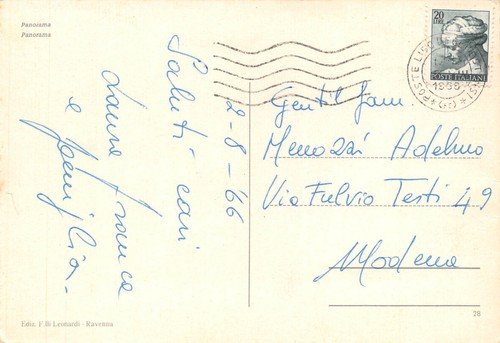 Panorama
Panorama
Saluti cari
2-8-66
Laura Franca
e famiglia.
20
LIRE
POSTE ITALIANE
1966
Gentil fam.
Menozzi Adelmo
Via Fulvio Testi 49
Modena
28
Ediz. F.lli Leonardi - Ravenna